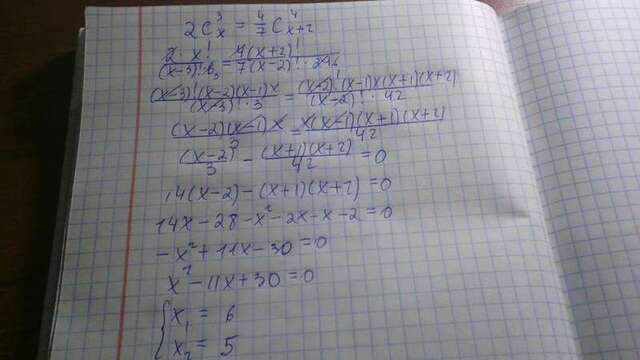 2C_x^3 = 4/7 C_{x+2}^4
2·x!/(x-3)!·6_3 = 4(x+2)!/7(x-2)!·246
(x-3)!(x-2)(x-1)x/(x-3)!·3 = (x-2)!(x-1)x(x+1)(x+2)/(x-2)!·42
(x-2)(x-1)x/3 = x(x-1)(x+1)(x+2)/42
(x-2)/3 - (x+1)(x+2)/42 = 0
14(x-2)-(x+1)(x+2)=0
14x-28-x²-2x-x-2=0
-x²+11x-30=0
x²-11x+30=0
{x₁ = 6
x₂ = 5